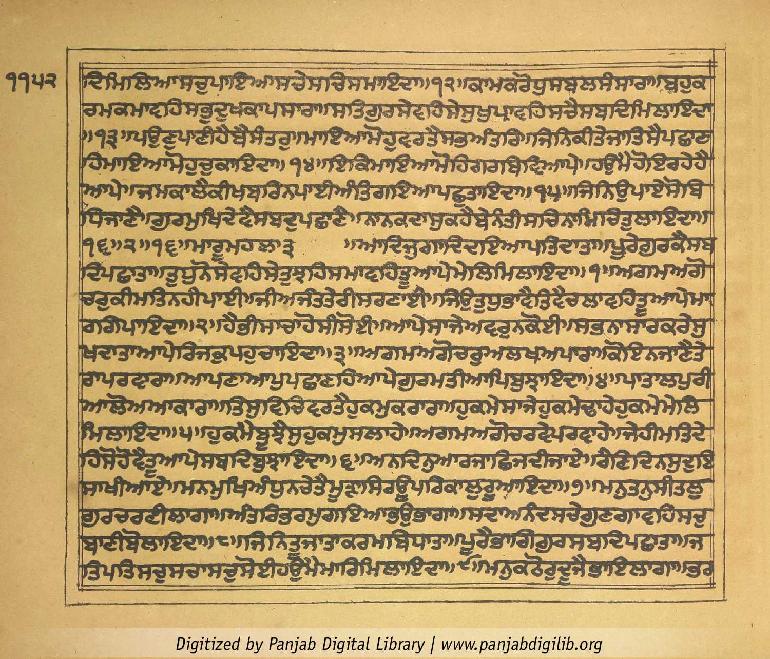 ੧੧੫੨
ਦਿਮਿਲਿਆਸਚੁਪਾਇਆਸਚੇਸਚਿਸਮਾਇਦਾ॥੧੨॥ਕਾਮਕਰੋਧੁਸਬਲਸੰਸਾਰਾ॥ਬਹੁਕ
ਰਮਕਮਾਵਹਿਸਭੁਦੁਖਕਾਪਸਾਰਾ॥ਸਤਿਗੁਰਸੇਵਹਿਸੇਸੁਖੁਪਾਵਹਿਸਚੈਸਬਦਿਮਿਲਾਇਦਾ
॥੧੩॥ਪਉਣੁਪਾਣੀਹੈਬੈਸੰਤਰੁ॥ਮਾਇਆਮੋਹੁਵਰਤੈਸਭਅੰਤਰਿ॥ਜਿਨਿਕੀਤੇਜਾਤੈਸੈਪਛਾਣ
ਹਿਮਾਇਆਮੋਹੁਚੁਕਾਇਦਾ॥੧੪॥ਇਕਿਮਾਇਆਮੋਹਿਗਰਬਿਵਿਆਪੇ॥ਹਉਮੈਹੋਇਰਹੇਹੈ
ਆਪੇ॥ਜਮਕਾਲੈਕੀਖਬਰਿਨਪਾਈਅੰਤਿਗਇਆਪਛੁਤਾਇਦਾ॥੧੫॥ਜਿਨਿਉਪਾਏਸੋਬਿ
ਧਿਜਾਣੈ॥ਗੁਰਮੁਖਿਦੇਵੈਸਬਦੁਪਛਾਣੈ॥ਨਾਨਕਦਾਸੁਕਹੈਬੇਨੰਤੀਸਚਿਨਾਮਿਚਿਤੁਲਾਇਦਾ॥
੧੬॥੨॥੧੬॥ਮਾਰੂਮਹਲਾ੩ ॥ਆਦਿਜੁਗਾਦਿਦਾਇਆਪਤਿਦਾਤਾ॥ਪੂਰੇਗੁਰਕੈਸਬ
ਦਿਪਛਾਤਾ॥ਤੁਧੁਨੋਸੇਵਹਿਸੇਤੁਝਹਿਸਮਾਵਹਿਤੂਆਪੇਮੇਲਿਮਿਲਾਇਦਾ॥੧॥ਅਗਮਅਗੋ
ਚਰੁਕੀਮਤਿਨਹੀਪਾਈ॥ਜੀਅਜੰਤਤੇਰੀਸਰਣਾਈ॥ਜਿਉਤੁਧੁਭਾਵੈਤਿਵੈਚਲਾਵਹਿਤੂਆਪੇਮਾ
ਰਗਿਪਾਇਦਾ॥੨॥ਹੈਭੀਸਾਚਾਹੋਸੀਸੋਈ॥ਆਪੇਸਾਜੇਅਵਰੁਨਕੋਈ॥ਸਭਨਾਸਾਰਕਰੇਸੁ
ਖਦਾਤਾਆਪੇਰਿਜਕੁਪਹੁਚਾਇਦਾ॥੩॥ਅਗਮਅਗੋਚਰੁਅਲਖਅਪਾਰਾ॥ਕੋਇਨਜਾਣੈਤੇ
ਰਾਪਰਵਾਰਾ॥ਆਪਣਾਆਪੁਪਛਾਣਹਿਆਪੇਗੁਰਮਤੀਆਪਿਬੁਝਾਇਦਾ॥੪॥ਪਾਤਾਲਪੁਰੀ
ਆਲੋਅਆਕਾਰਾ॥ਤਿਸੁਵਿਚਿਵਰਤੈਹੁਕਮੁਕਰਾਰਾ॥ਹੁਕਮੇਸਾਜੇਹੁਕਮੇਢਾਹੇਹੁਕਮੇਮੇਲਿ
ਮਿਲਾਇਦਾ॥੫॥ਹੁਕਮੈਬੂਝੈਸੁਹੁਕਮੁਸਲਾਹੇ॥ਅਗਮਅਗੋਚਰਵੇਪਰਵਾਹੇ॥ਜੇਹੀਮਤਿਦੇ
ਹਿਸੋਹੋਵੈਤੂਆਪੇਸਬਦਿਬੁਝਾਇਦਾ॥੬॥ਅਨਦਿਨੁਆਰਜਾਛਿਜਦੀਜਾਏ॥ਰੈਣਿਦਿਨਸੁਦੁਇ
ਸਾਖੀਆਏ॥ਮਨਮੁਖਿਅੰਧੁਨਚੇਤੈਮੂੜਾਸਿਰਊਪਰਿਕਾਲੁਰੂਆਇਦਾ॥੭॥ਮਨੁਤਨੁਸੀਤਲੁ
ਗੁਰਚਰਣੀਲਾਗਾ॥ਅੰਤਰਿਭਰਮੁਗਇਆਭਉਭਾਗਾ॥ਸਦਾਅਨੰਦਸਚੇਗੁਣਗਾਵਹਿਸਚੁ
ਬਾਣੀਬੋਲਾਇਦਾ॥੮॥ਜਿਨਿਤੂਜਾਤਾਕਰਮਬਿਧਾਤਾ॥ਪੂਰੈਭਾਗਿਗੁਰਸਬਦਿਪਛਾਤਾ॥ਜ
ਤਿਪਤਿਸਚੁਸਚਾਸਚੁਸੋਈਹਉਮੈਮਾਰਿਮਿਲਾਇਦਾ॥੯॥ਮਨੁਕਠੋਰੁਦੂਜੈਭਾਇਲਾਗਾ॥ਭਰ
Digitized by Panjab Digital Library | www.panjabdigilib.org